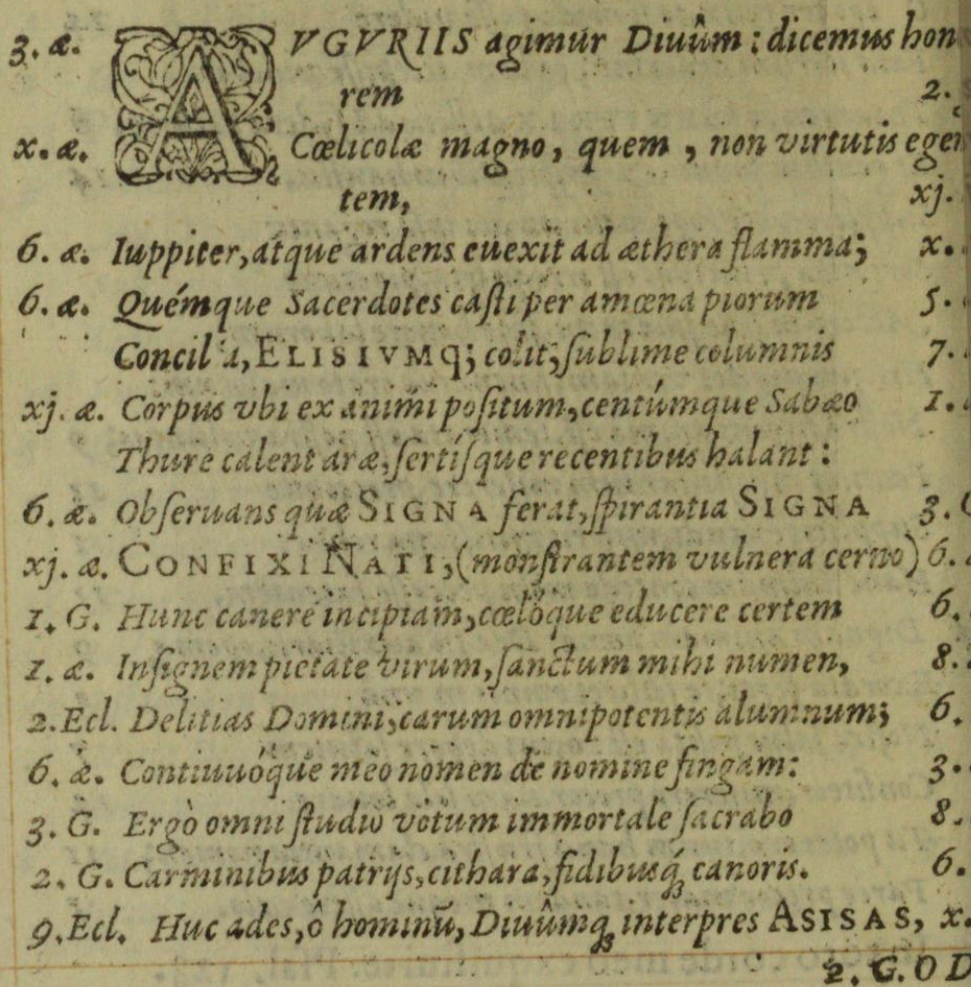 3. æ. AVGVRIIS agimur Diuûm : dicemus hon
rem 2.
x. æ. Cœlicolæ magno, quem, non virtutis egen
tem, xj.
6. æ. Iuppiter, atque ardens euexit ad æthera flamma; x.
6. æ. Quémque Sacerdotes casti per amœna piorum 5.
Concilia, ELISIVMq; colit; sublime columnis 7.
xj. æ. Corpus vbi exanimi positum, centúmque Sabæo 1.
Thure calent aræ, sertísque recentibus halant :
6. æ. Obseruans quæ SIGNA ferat, spirantia SIGNA 3. G
xj. æ. CONFIXI NATI, (monstrantem vulnera cerno) 6.
1. G. Hunc canere incipiam, cœlóque educere certem 6.
1. æ. Insignem pietate virum, sanctum mihi numen, 8.
2. Ecl. Delitias Domini, carum omnipotentis alumnum; 6.
6. æ. Contiuuóque meo nomen de nomine fingam: 3.
3. G. Ergò omni studio votum immortale sacrabo 8.
2. G. Carminibus patrijs, cithara, fidibusq́; canoris. 6.
9. Ecl. Huc ades, ô hominū, Diuûmq; interpres ASISAS, x.
2. G. O D